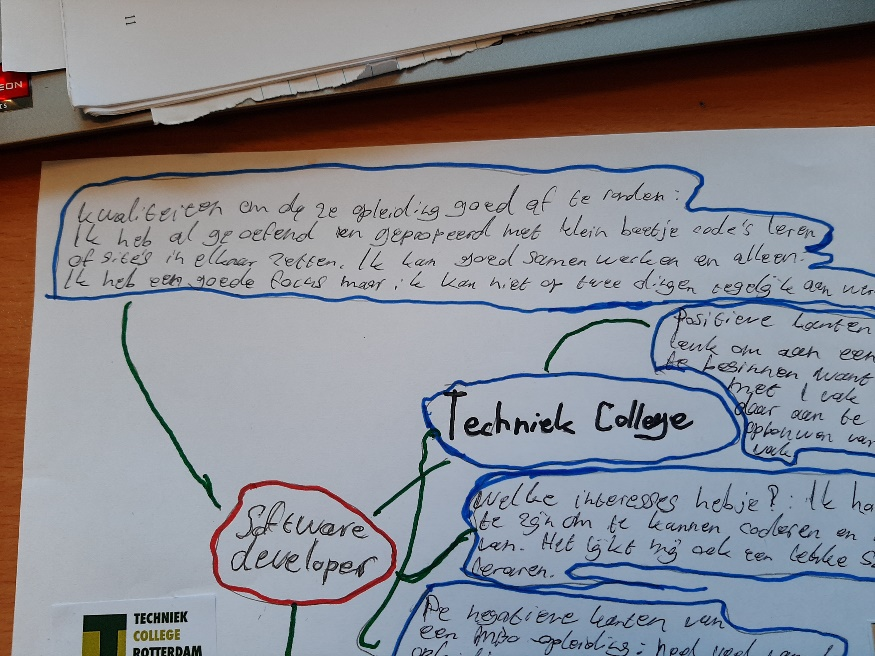 11
EON
kwaliteiten om de ze opleiding goed af te ronden:
Ik heb al geoefend en gepropeerd met klein beetje code's leren
of site's in elkaar zetten. Ik kan goed samen werken en alleen.
Ik heb een goede focus maar ik kan niet op twee dingen tegelijk aan wer
Positieve kanten
leuk om aan een
te beginnen want
met 1 vak
daar aan te
opbouwen van
vak
Techniek College
Welke interesses heb je?: Ik ha
te zijn om te kunnen coderen en
van. Het lijkt mij ook een leuke S
leraren.
Software
developer
De negatieve kanten van
een mbo opleiding: heel veel
TECHNIEK
COLLEGE
ROTTERDAM